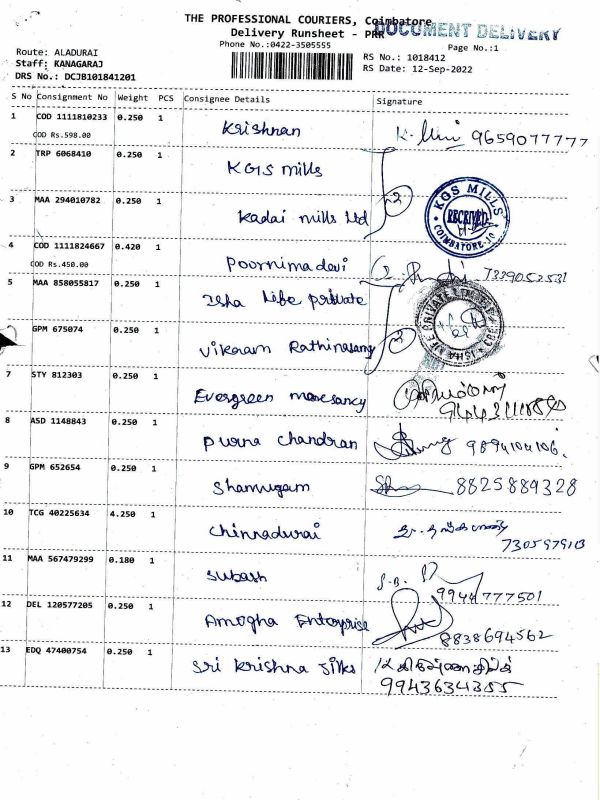 THE PROFESSIONAL COURIERS, Coimbatore
DOCUMENT DELIVERY
Delivery Runsheet - PRR
Phone No.:0422-3505555
Page No.:1
Route: ALADURAI
Staff: KANAGARAJ
DRS No.: DCJB101841201
RS No.: 1018412
RS Date: 12-Sep-2022
S No Consignment No Weight PCS Consignee Details Signature
1 COD 1111810233 0.250 1 Krishnan 9659077777
COD Rs.598.00
2 TRP 6068410 0.250 1 KGS mills
3 MAA 294010782 0.250 1 Kadai mills Ltd 2
KGS MILLS
RECEIVED
COIMBATORE-10
4 COD 1111824667 0.420 1 Poornima devi 7339052531
COD Rs.450.00
5 MAA 858055817 0.250 1 Isha Life private
GPM 675074 0.250 1 Vikaram Rathinasamy 2
7 STY 812303 0.250 1 Evergreen
8 ASD 1148843 0.250 1 Purna chandran 9894104106.
9 GPM 652654 0.250 1 Shanmugam 8825889328
10 TCG 40225634 4.250 1 Chinnadurai
11 MAA 567479299 0.180 1 Subash 9944777501
12 DEL 120577205 0.250 1 Amogha Enterprise 8838694562
13 EDQ 47400754 0.250 1 Sri Krishna Silks
9943634355